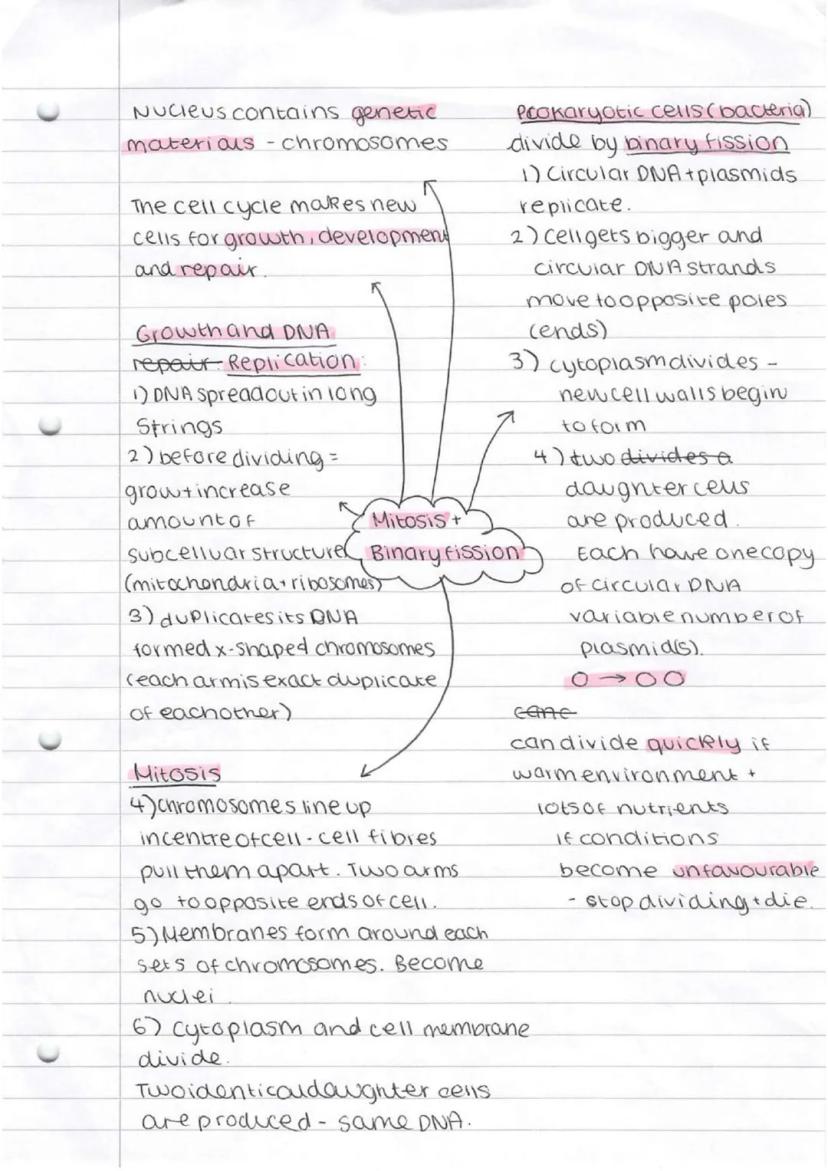 Nucleus contains genetic
materials - chromosomes
The cell cycle makes new
cells for growth, development
and repair.
Growth and DNA
repair Replication:
1) DNA spread out in long
strings
2) before dividing =
grow + increase
amount of
subcelluar structure
(mitochondria + ribosomes)
3) duplicates its DNA
formed x-shaped chromosomes
(each arm is exact duplicate
of eachother)
Mitosis
4) chromosomes line up
in centre of cell - cell fibres
pull them apart. Two arms
go to opposite ends of cell.
5) Membranes form around each
sets of chromosomes. Become
nuclei.
6) cytoplasm and cell membrane
divide.
Two identical daughter cells
are produced - same DNA.
Mitosis +
Binary fission
Prokaryotic cells (bacteria)
divide by binary fission
1) Circular DNA + plasmids
replicate.
2) Cell gets bigger and
circular DNA strands
move to opposite poles
(ends)
3) cytoplasm divides -
new cell walls begin
to form
4) two divides a
daughter cells
are produced.
Each have one copy
of circular DNA
variable number of
plasmid(s).
O → O O
cane
can divide quickly if
warm environment +
lots of nutrients
if conditions
become unfavourable
- stop dividing + die.